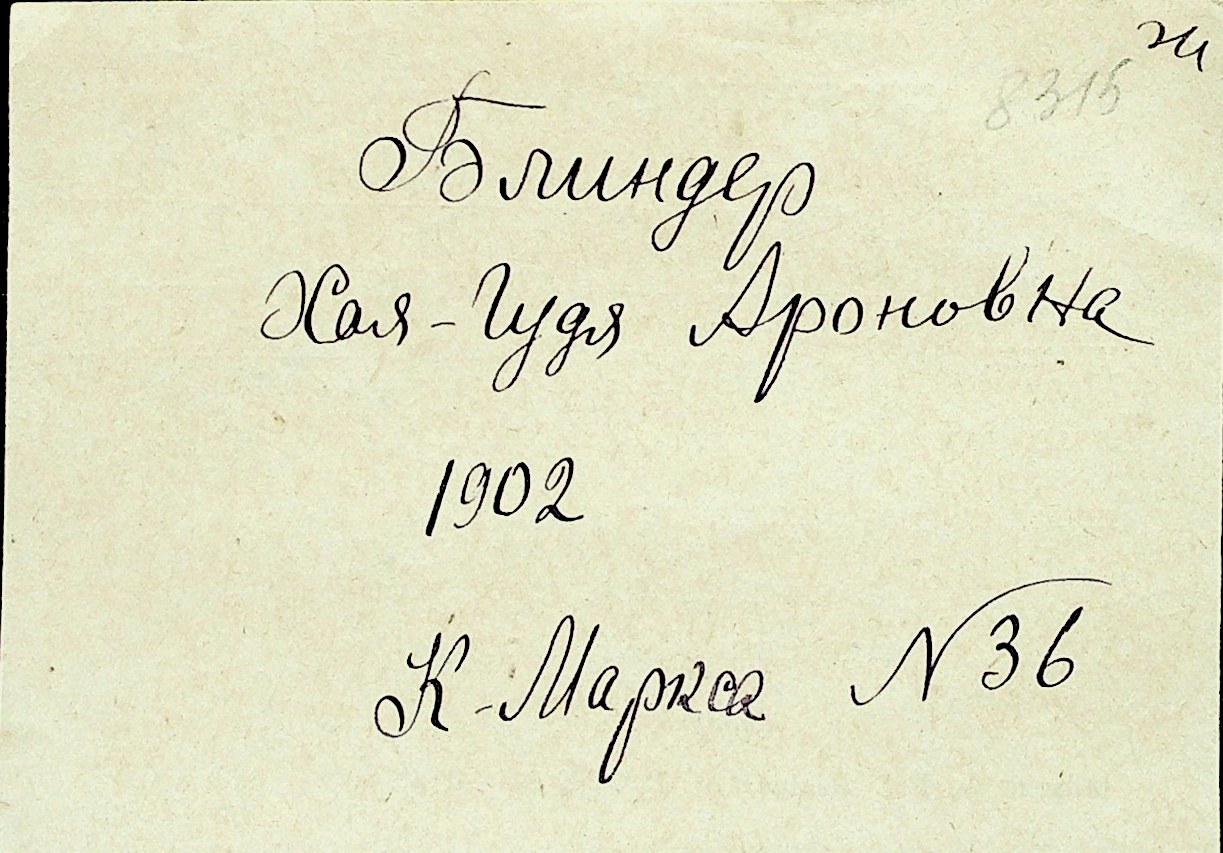 ж
8315
Блиндер
Хая-Гудя Ароновна
1902
К-Маркса N 36